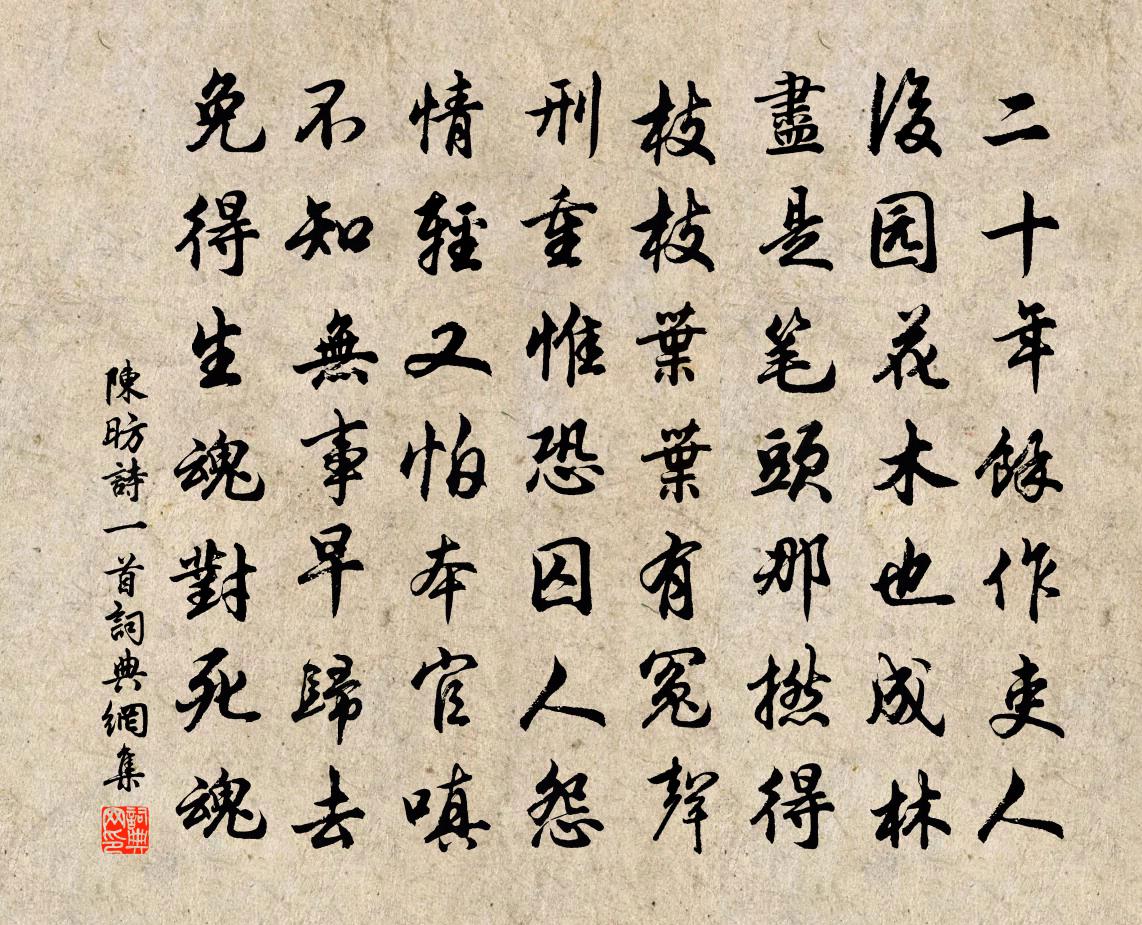 二十年餘作吏人
後园花木也成林
盡是笔頭那撚得
枝枝葉葉有冤聲
刑重惟恐囚人怨
情輕又怕本官嗔
不知無事早歸去
免得生魂對死魂
陳昉詩一首詞典網集
詞典网印